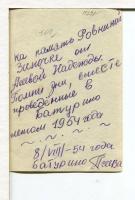 на память Ровниной
Зиночке от
Пеевой Надежды.
Помни дни, вместе
проведённые в
батурино
летом 1954 года
8/VIII-54 года
батурино Пеева